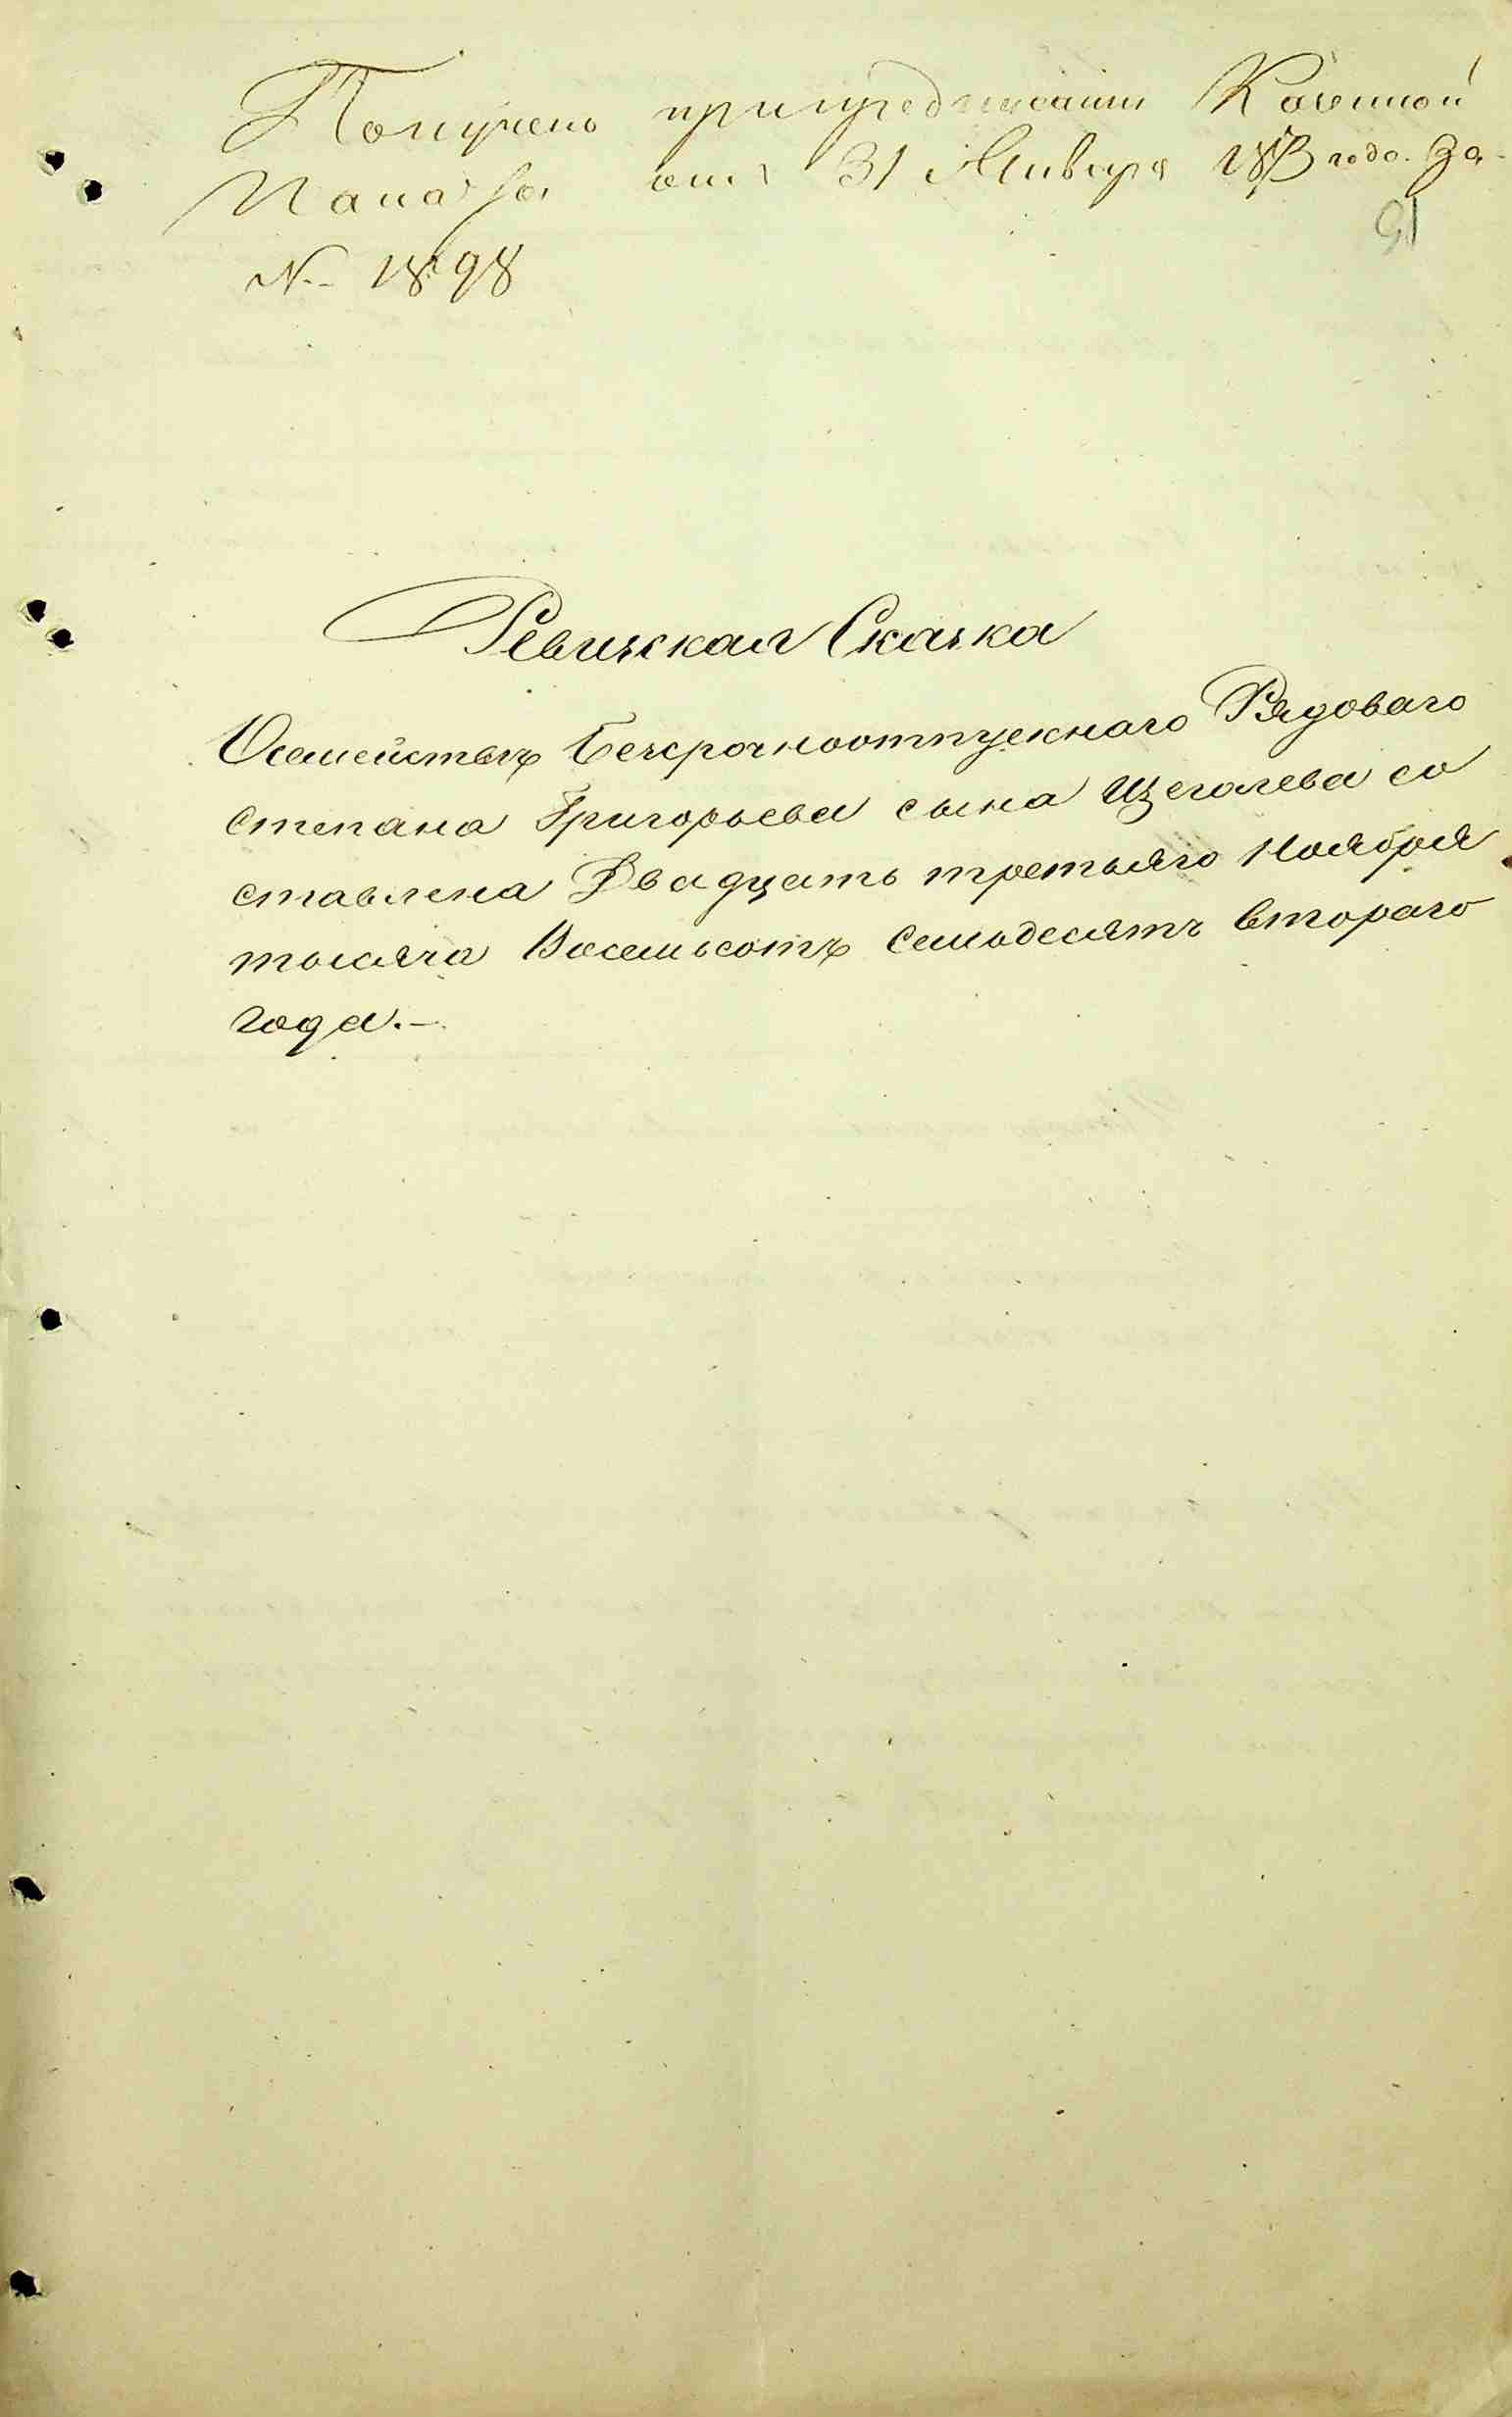 Получено при предписании Казенной
Палаты отъ 31 Января 1873 года. За
91
№ 1898
Ревизская Сказка
Осемействѣ Безсрочноотпускнаго Рядоваго
Степана Григорьева сына Щеголева со
ставлена Двадцать третьяго Ноября
тысяча Восемьсотъ Семьдесятъ втораго
года.–